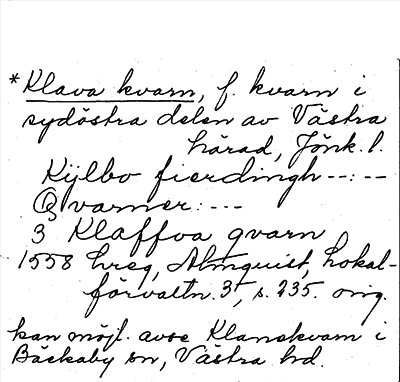 *Klava kvarn, f. kvarn i
sydöstra delen av Västra
härad, Jönk. l.
Kijlbo fierdingh --:--
Qvarner: ---
3 Klaffva qvarn
1558 hreg, Almquist, Lokal-
förvaltn. 3, s. 235. orig.
kan möjl. avse Klanskvarn i
Bäckaby sn, Västra hd.